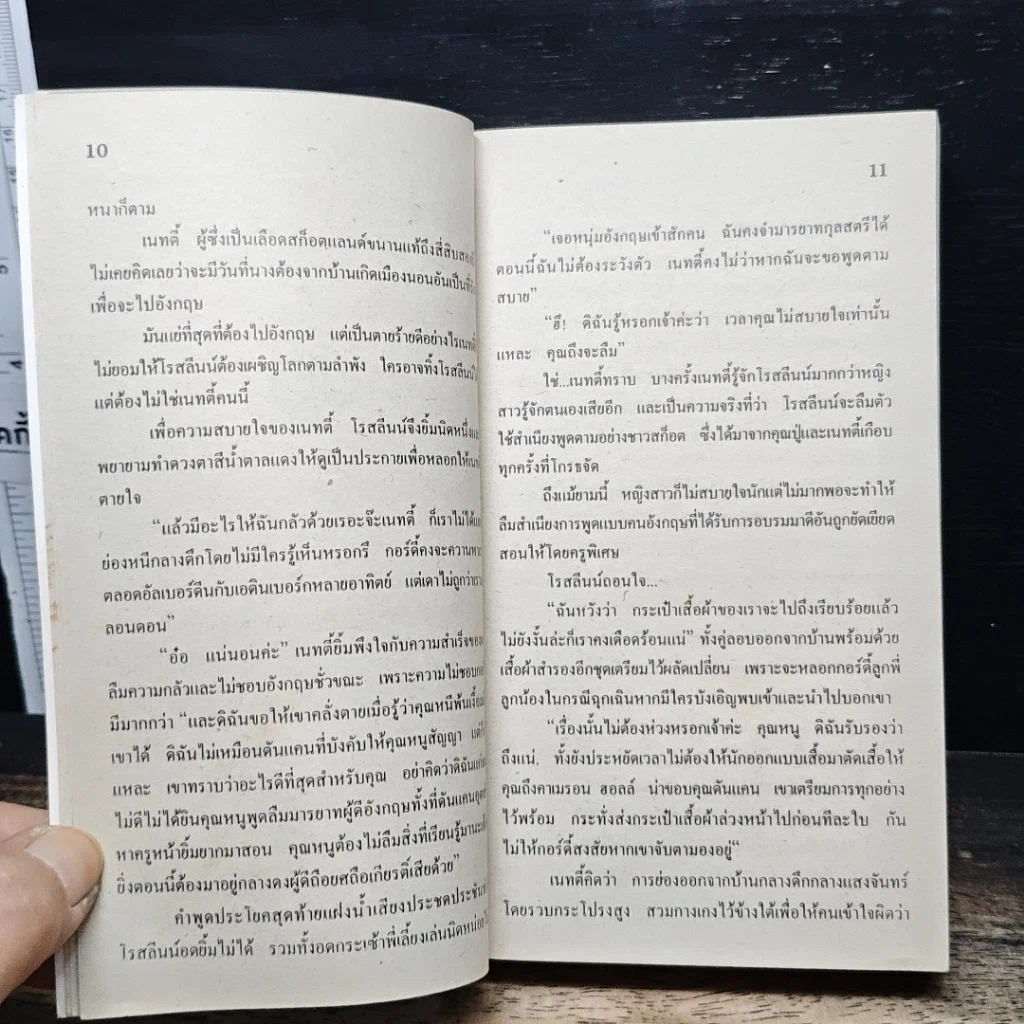 10
หนาก็ตาม
เนทตี้ ผู้ซึ่งเป็นเลือดสก็อตแลนด์ขนานแท้ถึงสี่สิบสอง
ไม่เคยคิดเลยว่าจะมีวันที่นางต้องจากบ้านเกิดเมืองนอนอันเป็นที่
เพื่อจะไปอังกฤษ
มันแย่ที่สุดที่ต้องไปอังกฤษ แต่เป็นตายร้ายดีอย่างไรเนทตี้
ไม่ยอมให้โรสลีนน์ต้องเผชิญโลกตามลำพัง ใครอาจทิ้งโรสลีนน์
แต่ต้องไม่ใช่เนทตี้คนนี้
เพื่อความสบายใจของเนทตี้ โรสลีนน์จึงยิ้มนิดหนึ่ง
พยายามทำดวงตาสีน้ำตาลแดงให้ดูเป็นประกายเพื่อหลอกให้
ตายใจ
“แล้วมีอะไรให้ฉันกลัวด้วยเรอะจ๊ะเนทตี้ ก็เราไม่ได้
ย่องหนีกลางดึกโดยไม่มีใครรู้เห็นหรอกรึ กอร์ดี้คงจะควานหา
ตลอดอัลเบอร์ดีนกับเอดินเบอร์กหลายอาทิตย์ แต่เดาไม่ถูกว่า
ลอนดอน”
“อ๋อ แน่นอนค่ะ” เนทตี้ยิ้มพึงใจกับความสำเร็จของ
ลืมความกลัวและไม่ชอบอังกฤษชั่วขณะ เพราะความไม่ชอบ
มีมากกว่า “และดิฉันขอให้เขาคลั่งตายเมื่อรู้ว่าคุณหนีพ้นเงื้อม
เขาได้ ดิฉันไม่เหมือนดันแคนที่บังคับให้คุณหนูสัญญา แต่ก็
แหละ เขาทราบว่าอะไรดีที่สุดสำหรับคุณ อย่าคิดว่าดิฉัน
ไม่ดีไม่ได้ยินคุณหนูพูดลืมมารยาทผู้ดีอังกฤษทั้งที่ดันแคน
หาครูหน้ายิ้มยากมาสอน คุณหนูต้องไม่ลืมสิ่งที่เรียนรู้มานะ
ยิ่งตอนนี้ต้องมาอยู่กลางดงผู้ดีถือยศถือเกียรติ์เสียด้วย”
คำพูดประโยคสุดท้ายแฝงน้ำเสียงประชดประชัน
โรสลีนน์อดยิ้มไม่ได้ รวมทั้งอดกระเซ้าพี่เลี้ยงเล่นนิดหน่อย
11
“เจอหนุ่มอังกฤษเข้าสักคน ฉันคงจำมารยาทกุลสตรีได้
ตอนนี้ฉันไม่ต้องระวังตัว เนทตี้คงไม่ว่าหากฉันจะขอพูดตาม
สบาย”
“ฮึ! ดิฉันรู้หรอกเจ้าค่ะว่า เวลาคุณไม่สบายใจเท่านั้น
แหละ คุณถึงจะลืม”
ใช่...เนทตี้ทราบ บางครั้งเนทตี้รู้จักโรสลีนน์มากกว่าหญิง
สาวรู้จักตนเองเสียอีก และเป็นความจริงที่ว่า โรสลีนน์จะลืมตัว
ใช้สำเนียงพูดตามอย่างชาวสก็อต ซึ่งได้มาจากคุณปู่และเนทตี้เกือบ
ทุกครั้งที่โกรธจัด
ถึงแม้ยามนี้ หญิงสาวก็ไม่สบายใจนักแต่ไม่มากพอจะทำให้
ลืมสำเนียงการพูดแบบคนอังกฤษที่ได้รับการอบรมมาดีอันถูกยัดเยียด
สอนให้โดยครูพิเศษ
โรสลีนน์ถอนใจ...
“ฉันหวังว่า กระเป๋าเสื้อผ้าของเราจะไปถึงเรียบร้อยแล้ว
ไม่ยังงั้นล่ะก็เราคงเดือดร้อนแน่” ทั้งคู่ลอบออกจากบ้านพร้อมด้วย
เสื้อผ้าสำรองอีกชุดเตรียมไว้ผลัดเปลี่ยน เพราะจะหลอกกอร์ดี้ลูกพี่
ลูกน้องในกรณีฉุกเฉินหากมีใครบังเอิญพบเข้าและนำไปบอกเขา
“เรื่องนั้นไม่ต้องห่วงหรอกเจ้าค่ะ คุณหนู ดิฉันรับรองว่า
ถึงแน่. ทั้งยังประหยัดเวลาไม่ต้องให้นักออกแบบเสื้อมาตัดเสื้อให้
คุณถึงคาเมรอน ฮอลล์ น่าขอบคุณดันแคน เขาเตรียมการทุกอย่าง
ไว้พร้อม กระทั่งส่งกระเป๋าเสื้อผ้าล่วงหน้าไปก่อนทีละใบ กัน
ไม่ให้กอร์ดี้สงสัยหากเขาจับตามองอยู่“
เนทตี้คิดว่า การย่องออกจากบ้านกลางดึกกลางแสงจันทร์
โดยรวบกระโปรงสูง สวมกางเกงไว้ข้างใต้เพื่อให้คนเข้าใจผิดว่า